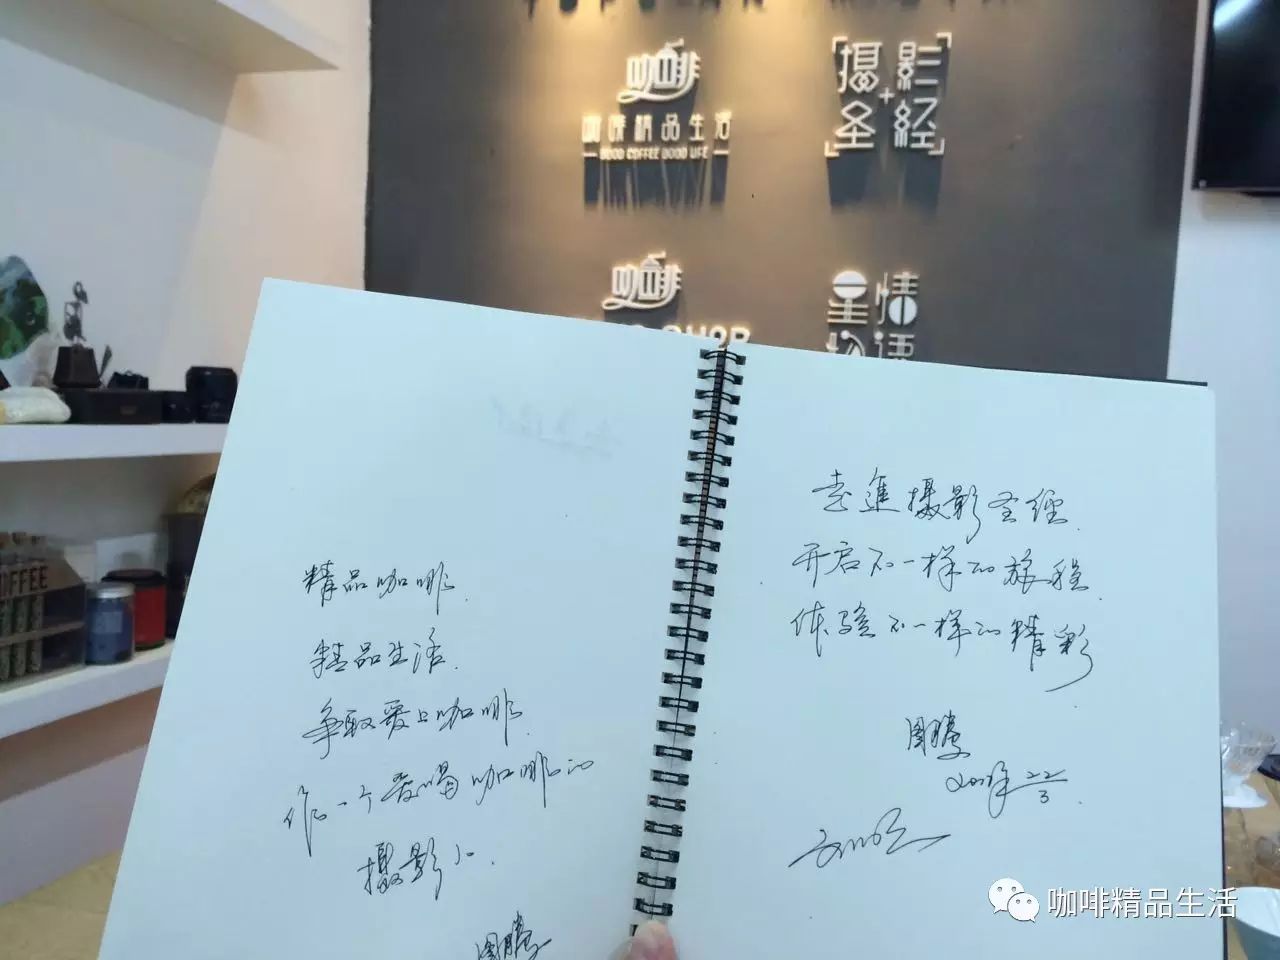 咖啡
咖啡精品生活
GOOD COFFEE GOOD LIFE
摄影
圣经
咖啡
情
COFFEE
精品咖啡.
精品生活.
争取爱上咖啡.
作一个爱喝咖啡的
摄影人.
图腾
走進摄影圣經.
开启不一样的旅程.
体验不一样的精彩
图腾
22/3.
咖啡精品生活